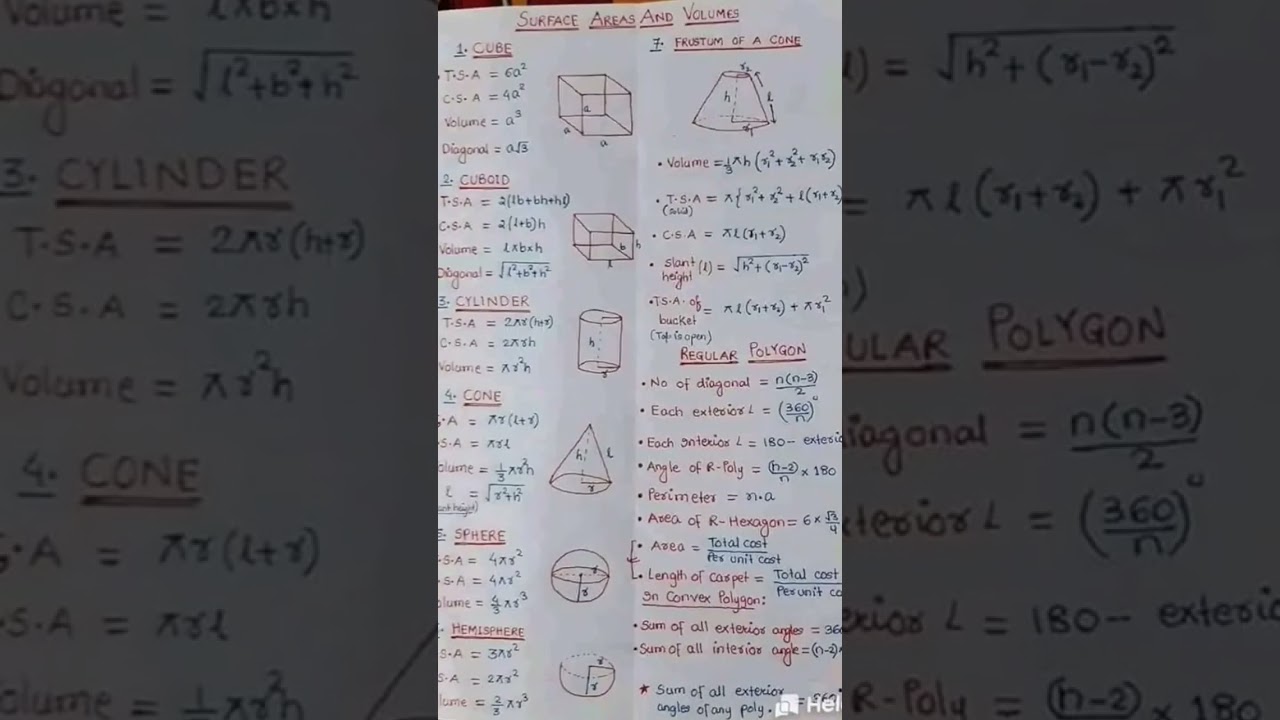 SURFACE AREAS AND VOLUMES
1. CUBE
T.S.A = 6a²
C.S.A = 4a²
Volume = a³
Diagonal = a√3
a
a
a
2. CUBOID
T.S.A = 2(lb+bh+hl)
C.S.A = 2(l+b)h
Volume = l×b×h
Diagonal = √l²+b²+h²
b
h
l
3. CYLINDER
T.S.A = 2πr(h+r)
C.S.A = 2πrh
Volume = πr²h
h
r
4. CONE
S.A = πr(l+r)
S.A = πrl
olume = 1/3 πr²h
l = √r²+h²
height)
h
l
r
SPHERE
S.A = 4πr²
S.A = 4πr²
olume = 4/3 πr³
r
r
HEMISPHERE
S.A = 3πr²
S.A = 2πr²
lume = 2/3 πr³
r
r
7. FRUSTUM OF A CONE
r₂
h
l
r₁
• Volume = 1/3 πh (r₁² + r₂² + r₁r₂)
• T.S.A = π{r₁² + r₂² + l(r₁+r₂)
(solid)
• C.S.A = πl(r₁+r₂)
• Slant height (l) = √h²+(r₁-r₂)²
• TSA. of bucket = πl(r₁+r₂) + πr₁²
(Top is open)
REGULAR POLYGON
• No of diagonal = n(n-3)/2
• Each exterior L = (360/n)°
• Each interior L = 180 - exterio
• Angle of R-Poly = (n-2)/n × 180
• Perimeter = n.a
• Area of R-Hexagon = 6 × √3/4
• Area = Total cost / Per unit cost
• Length of carpet = Total cost / Per unit co
In Convex Polygon:
• Sum of all exterior angles = 360
• Sum of all interior angle = (n-2)
★ Sum of all exterior
angles of any poly. = 360°
Hel
Volume = l×b×h
Diagonal = √l²+b²+h²
3. CYLINDER
T.S.A = 2πr(h+r)
C.S.A = 2πrh
Volume = πr²h
4. CONE
S.A = πr(l+r)
.S.A = πrl
olume = 1/3 πr²h
l) = √h²+(r₁-r₂)²
= πl(r₁+r₂) + πr₁²
ULAR POLYGON
iagonal = n(n-3)/2
xterior L = (360/n)°
erior L = 180 - exterio
R-Poly = (n-2)/n × 180